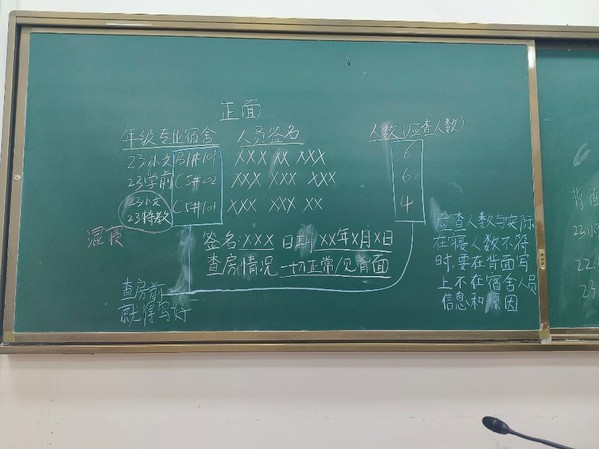 正面
年级专业宿舍 人员签名 人数(应查人数)
23小文 B1#101 XXX XX XXX 6
23学前 C5#202 XXX XXX XXX 6
23小文
23特教 C5#101 XXX XXX XX 4
混寝
签名:XXX 日期XX年X月X日
查房情况 一切正常/见背面
查房前
就得写好
应查人数与实际
在寝人数不符
时,要在背面写
上不在宿舍人员
信息和原因
背面
23小
22.
23